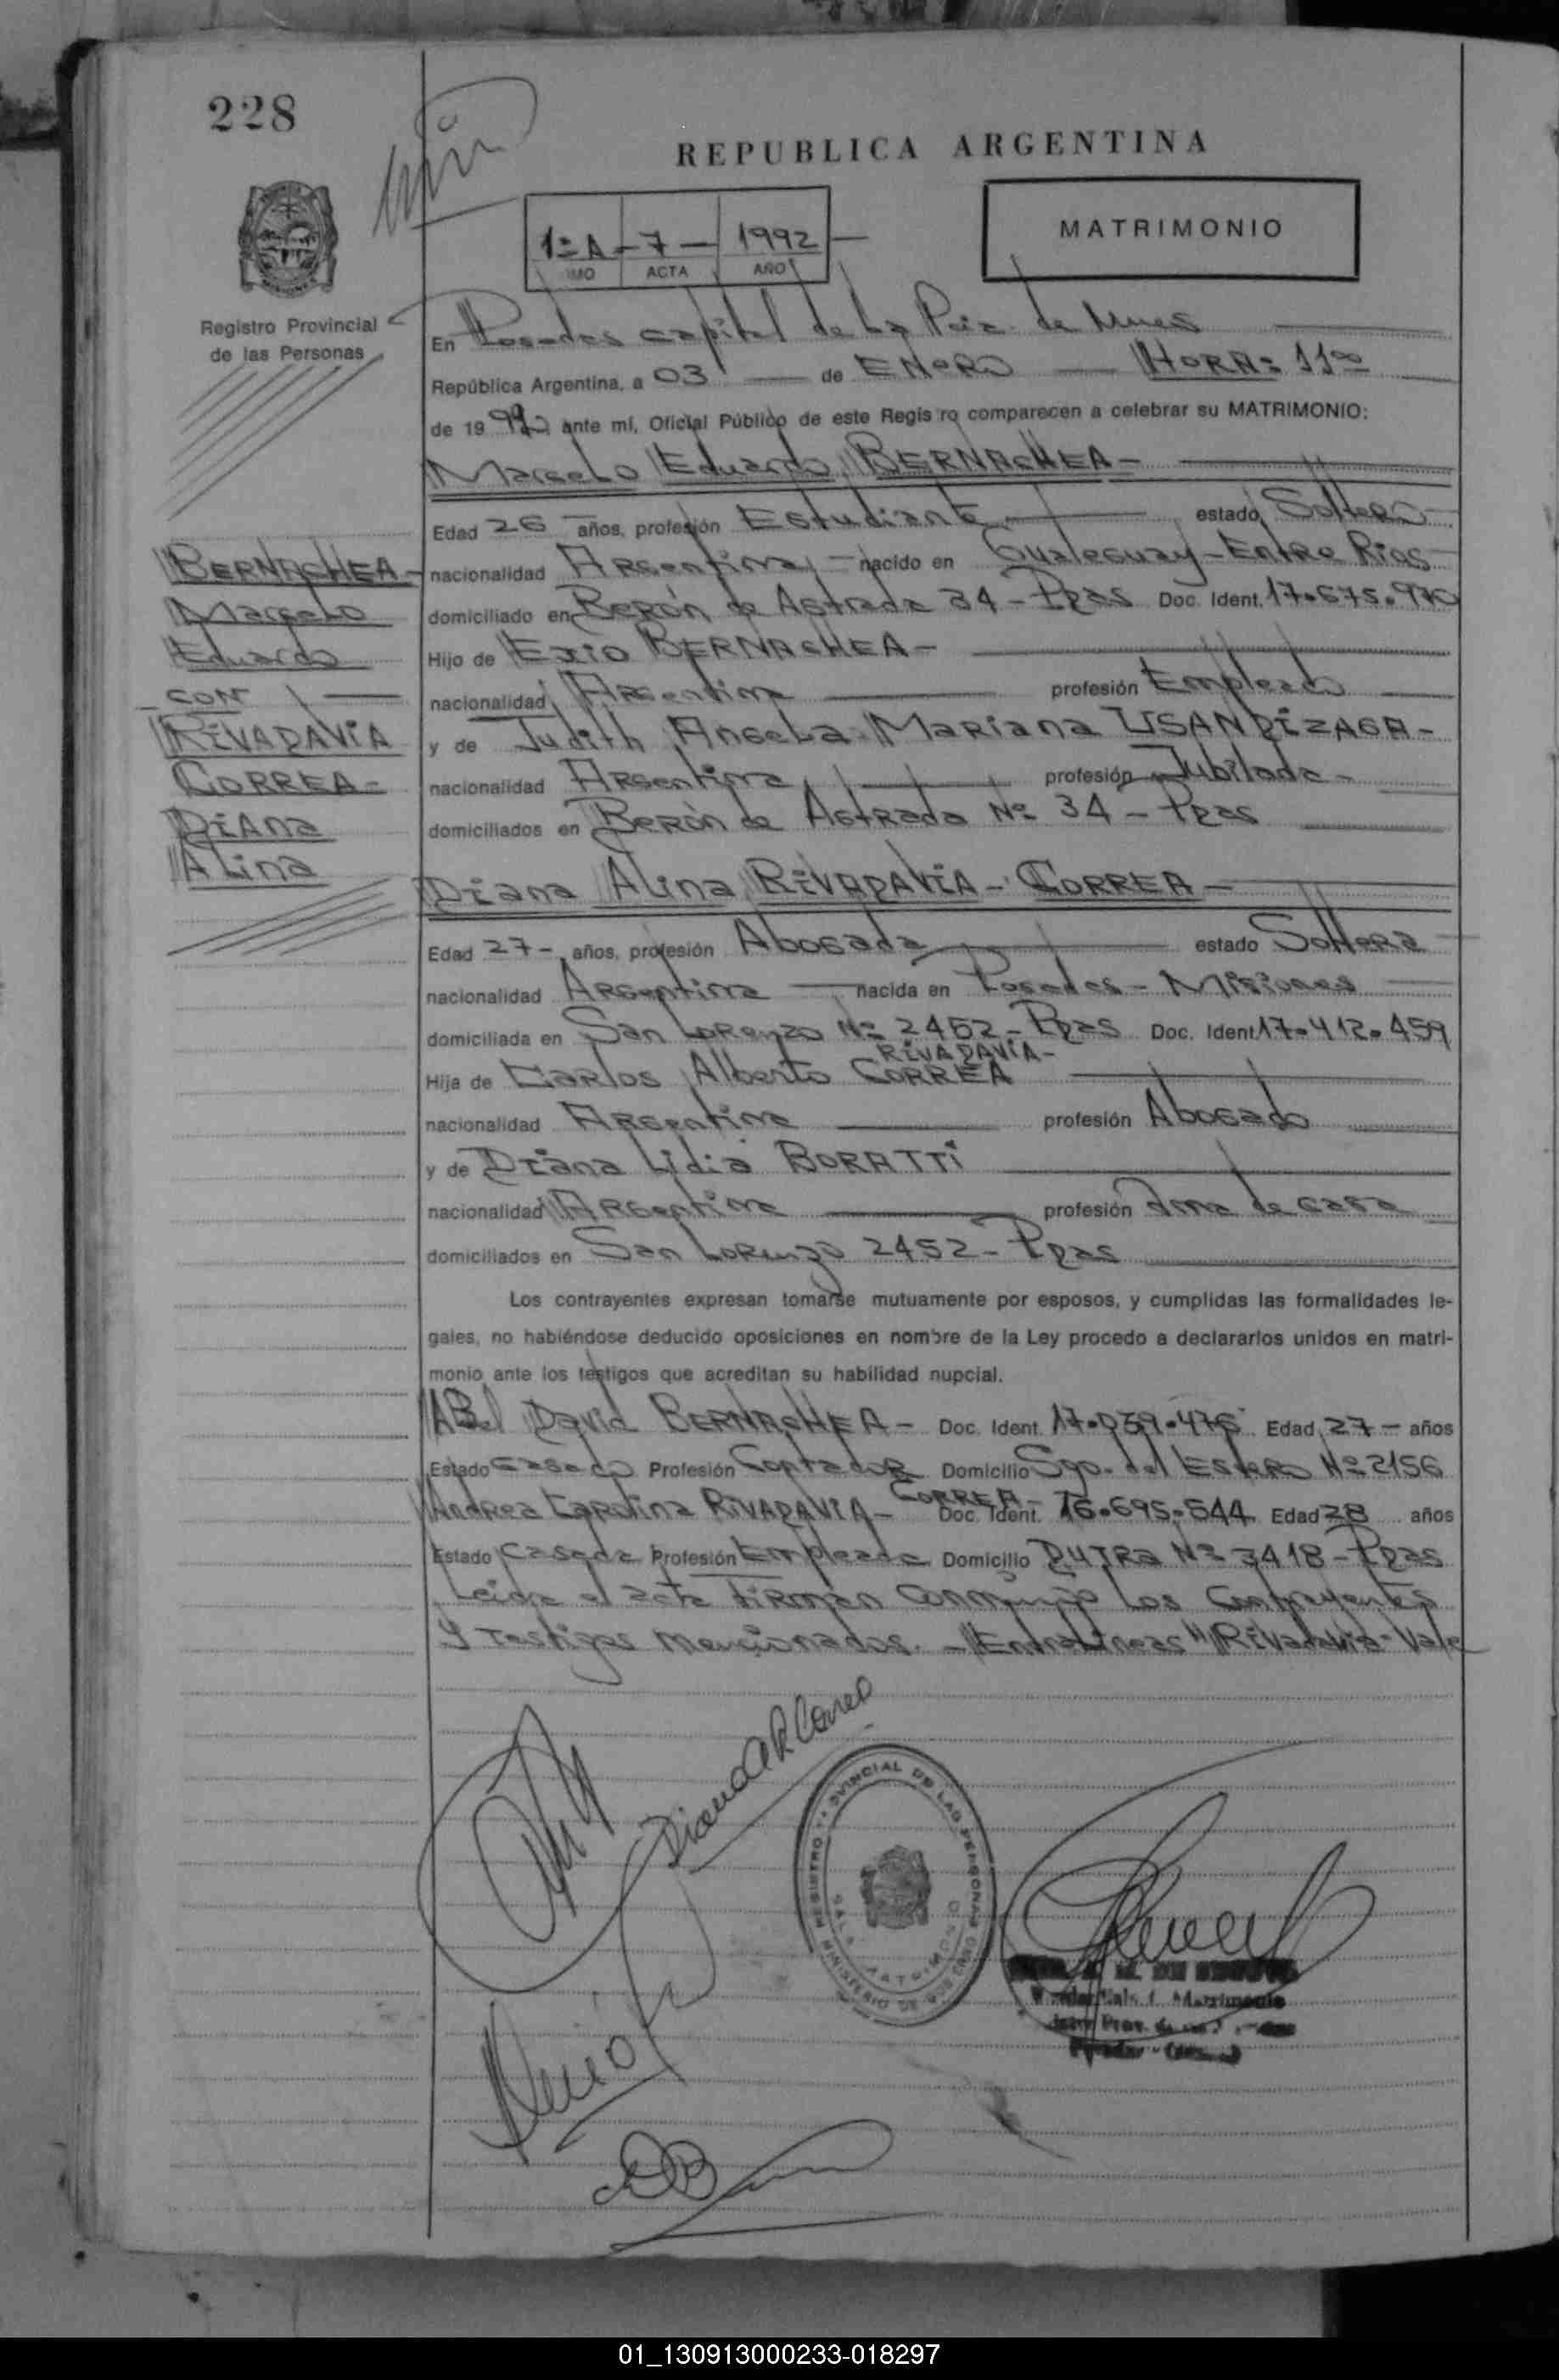 228
REPUBLICA ARGENTINA
MATRIMONIO
1º A - 7 - 1992 -
ACTA AÑO
Registro Provincial
de las Personas
En Posadas capital de La Pcia. de Mnes
República Argentina, a 03 de ENERO HORA: 11 00
de 19 92 ante mí, Oficial Público de este Registro comparecen a celebrar su MATRIMONIO:
Marcelo Eduardo BERNACHEA -
Edad 26 años, profesión Estudiante estado Soltero
nacionalidad Argentina nacido en Gualeguay - Entre Rios
domiciliado en Berón de Astrada 34 - Ppas Doc. Ident. 17.675.970
Hijo de Exio BERNACHEA -
nacionalidad Argentina profesión Empleado
y de Judith Angela Mariana USANDIZAGA -
nacionalidad Argentina profesión Jubilada -
domiciliados en Berón de Astrada Nº 34 - Ppas
BERNACHEA -
Marcelo
Eduardo
CON
RIVADAVIA
CORREA -
DIANA
ALINA
Diana Alina RIVADAVIA - CORREA -
Edad 27 - años, profesión Abogada estado Soltera
nacionalidad Argentina nacida en Posadas - Misiones
domiciliada en San Lorenzo Nº 2452 - Ppas Doc. Ident 17.412.459
RIVADAVIA -
Hija de Carlos Alberto CORREA
nacionalidad Argentina profesión Abogado
y de Diana Lidia BORATTI
nacionalidad Argentina profesión Ama de casa
domiciliados en San Lorenzo 2452 - Ppas
Los contrayentes expresan tomarse mutuamente por esposos, y cumplidas las formalidades le-
gales, no habiéndose deducido oposiciones en nombre de la Ley procedo a declararlos unidos en matri-
monio ante los testigos que acreditan su habilidad nupcial.
Abel David BERNACHEA - Doc. Ident. 17.039.476 Edad 27 - años
Estado Casado Profesión Contador Domicilio Sgo. del Estero Nº 2156
CORREA -
Andrea Carolina RIVADAVIA - Doc. Ident. 16.695.544 Edad 28 años
Estado Casada Profesión Empleada Domicilio DUTRA Nº 3418 - Ppas
Leida el acta firman conmigo los Contrayentes
y Testigos mencionados. - Entrelineas "Rivadavia" Vale
Diana A R Correa
REGISTRO PROVINCIAL DE LAS PERSONAS
SALA MATRIMONIO
MINISTERIO DE GOBIERNO
01_130913000233-018297